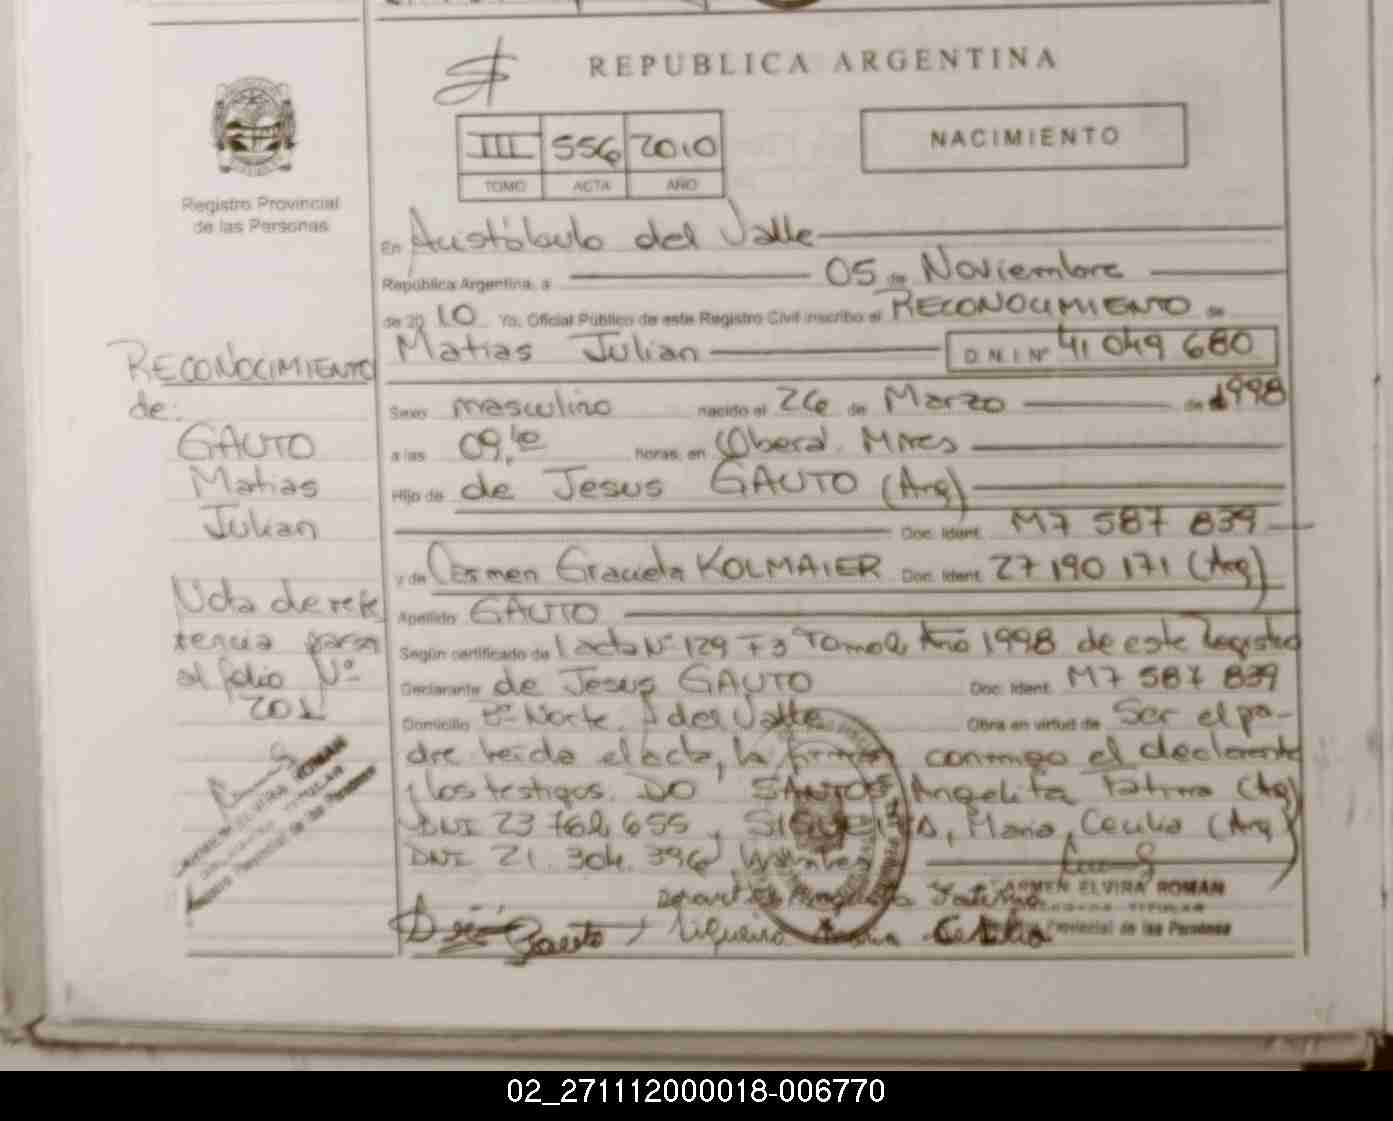 REPUBLICA ARGENTINA
III 556 2010
TOMO ACTA AÑO
NACIMIENTO
Registro Provincial
de las Personas
En Aristóbulo del Valle
República Argentina, a 05 de Noviembre
de 20 10 Yo, Oficial Público de este Registro Civil inscribo el RECONOCIMIENTO de
Matias Julian D N I Nº 41 049 680
Sexo masculino nacido el 26 de Marzo de 1998
a las 09,40 horas, en Oberá. Mnes
Hijo de de Jesus GAUTO (Arg)
Doc. Ident. M7 587 839
y de Carmen Graciela KOLMAIER Doc. Ident. 27 190 171 (Arg)
Apellido GAUTO
Según certificado de Acta Nº 129 F3 Tomo Año 1998 de este Registro
Declarante de Jesus GAUTO Doc. Ident. M7 587 839
Domicilio Norte. A del Valle Obra en virtud de Ser el pa-
dre leida el acta, la firman conmigo el declarante
y los testigos. DO SANTOS, Angelita Fatima (Arg)
DNI 23 762 655, SIQUEIRA, Maria, Cecilia (Arg)
DNI 21. 304. 396
RECONOCIMIENTO
de:
GAUTO
Matias
Julian
Nota de refe
rencia pasa
al folio Nº
201
CARMEN ELVIRA ROMAN
TITULAR
Provincial de las Personas
CARMEN ELVIRA ROMAN
DELEGADA TITULAR
Provincial de las Personas
Gauto
Siqueira Maria Cecilia
02_271112000018-006770